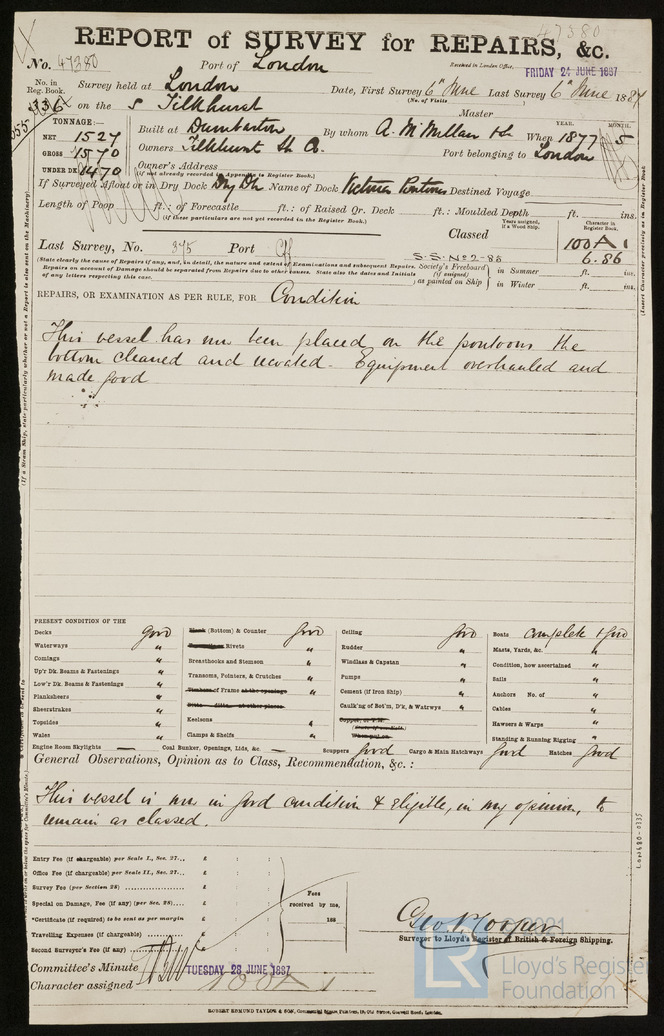 47380
REPORT of SURVEY for REPAIRS, &c.
No. 47380 Port of London
Received in London Office, FRIDAY 24 JUNE 1887
No. in Reg. Book.
Survey held at London Date, First Survey 6th June Last Survey 6th June 1887
(No. of Visits )
on the s Tilkhurst Master
TONNAGE:—
NET 1527
GROSS 1570
UNDER DK 1470
Built at Dumbarton By whom A. McMillan When 1877 5
YEAR. MONTH.
Owners Tilkhurst Sh Co. Port belonging to London
Owner's Address
(if not already recorded in Appendix to Register Book.)
If Surveyed Afloat or in Dry Dock Dry Dk Name of Dock Victoria Pontoons Destined Voyage
Length of Poop ft.; of Forecastle ft.: of Raised Qr. Deck ft.: Moulded Depth ft. ins.
(if these particulars are not yet recorded in the Register Book.)
Classed
Years assigned, if a Wood Ship.
Character in Register Book.
100 A 1
6.86
Last Survey, No. 375 Port Cff
S.S. No 2-88
(State clearly the cause of Repairs if any, and, in detail, the nature and extent of Examinations and subsequent Repairs.
Repairs on account of Damage should be separated from Repairs due to other causes. State also the dates and Initials
of any letters respecting this case.
Society's Freeboard (if assigned) as painted on Ship
in Summer ft. ins.
in Winter ft. ins.
REPAIRS, OR EXAMINATION AS PER RULE, FOR Condition
This vessel has now been placed on the pontoons the
bottom cleaned and recoated. Equipment overhauled and
made good
PRESENT CONDITION OF THE
Decks good
Waterways "
Comings "
Up'r Dk. Beams & Fastenings "
Low'r Dk. Beams & Fastenings "
Planksheers "
Sheerstrakes "
Topsides "
Wales "
Engine Room Skylights —
Plank (Bottom) & Counter good
Rivets "
Breasthooks and Stemson "
Transoms, Pointers, & Crutches "
Timbers of Frame at the openings "
Ditto ditto at other places
Keelsons "
Clamps & Shelfs "
Coal Bunker, Openings, Lids, &c. —
Ceiling good
Rudder "
Windlass & Capstan "
Pumps "
Cement (if Iron Ship) "
Caulk'g of Bot'm, D'k, & Watrwys "
Scuppers good Cargo & Main Hatchways good Hatches good
Boats complete & good
Masts, Yards, &c. "
Condition, how ascertained "
Sails "
Anchors No. of "
Cables "
Hawsers & Warps "
Standing & Running Rigging "
General Observations, Opinion as to Class, Recommendation, &c.:
This vessel is now in good condition & Eligible, in my opinion, to
remain as classed.
Entry Fee (if chargeable) per Scale I., Sec. 27... £ : :
Office Fee (if chargeable) per Scale II., Sec. 27... £ : :
Survey Fee (per Section 28) £ : :
Special on Damage, Fee (if any) (per Sec. 28) £ : :
*Certificate (if required) to be sent as per margin £ : :
Travelling Expenses (if chargeable) £ : :
Second Surveyor's Fee (if any) £ : :
Fees received by me,
188
Geo. P. Cooper
Surveyor to Lloyd's Register of British & Foreign Shipping.
Committee's Minute TUESDAY 28 JUNE 1887
Character assigned 100 A 1
ROBERT EDMUND TAYLOR & SON,
2021
LR
Lloyd's Register
Foundation